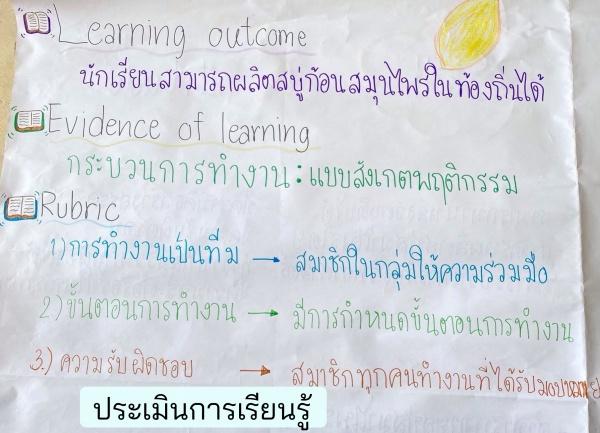 Learning outcome
นักเรียนสามารถผลิตสบู่ก้อนสมุนไพรในท้องถิ่นได้
Evidence of learning
กระบวนการทำงาน : แบบสังเกตพฤติกรรม
Rubric
1) การทำงานเป็นทีม → สมาชิกในกลุ่มให้ความร่วมมือ
2) ขั้นตอนการทำงาน → มีการกำหนดขั้นตอนการทำงาน
3.) ความรับผิดชอบ → สมาชิกทุกคนทำงานที่ได้รับมอบหมาย
ประเมินการเรียนรู้